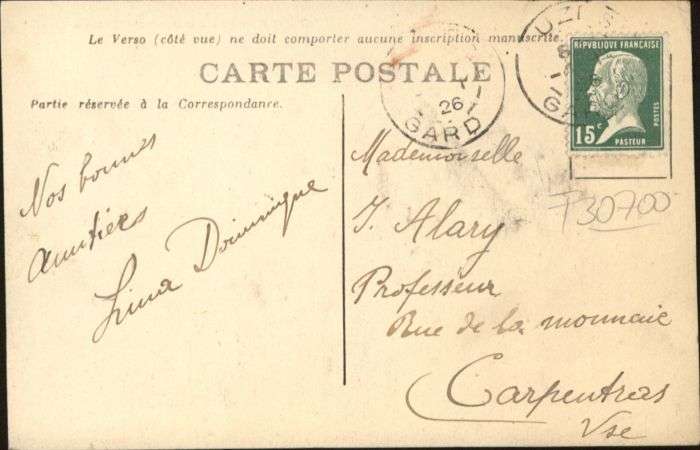 Le Verso (côté vue) ne doit comporter aucune inscription manuscrite.
CARTE POSTALE
Partie réservée à la Correspondance.
Nos bonnes
amitiés
Lina Dominique
26
GARD
UZÈS
GARD
RÉPUBLIQUE FRANÇAISE
15c
POSTES
PASTEUR
T30700
Mademoiselle
J. Alary
Professeur
Rue de la monnaie
Carpentras
Vse